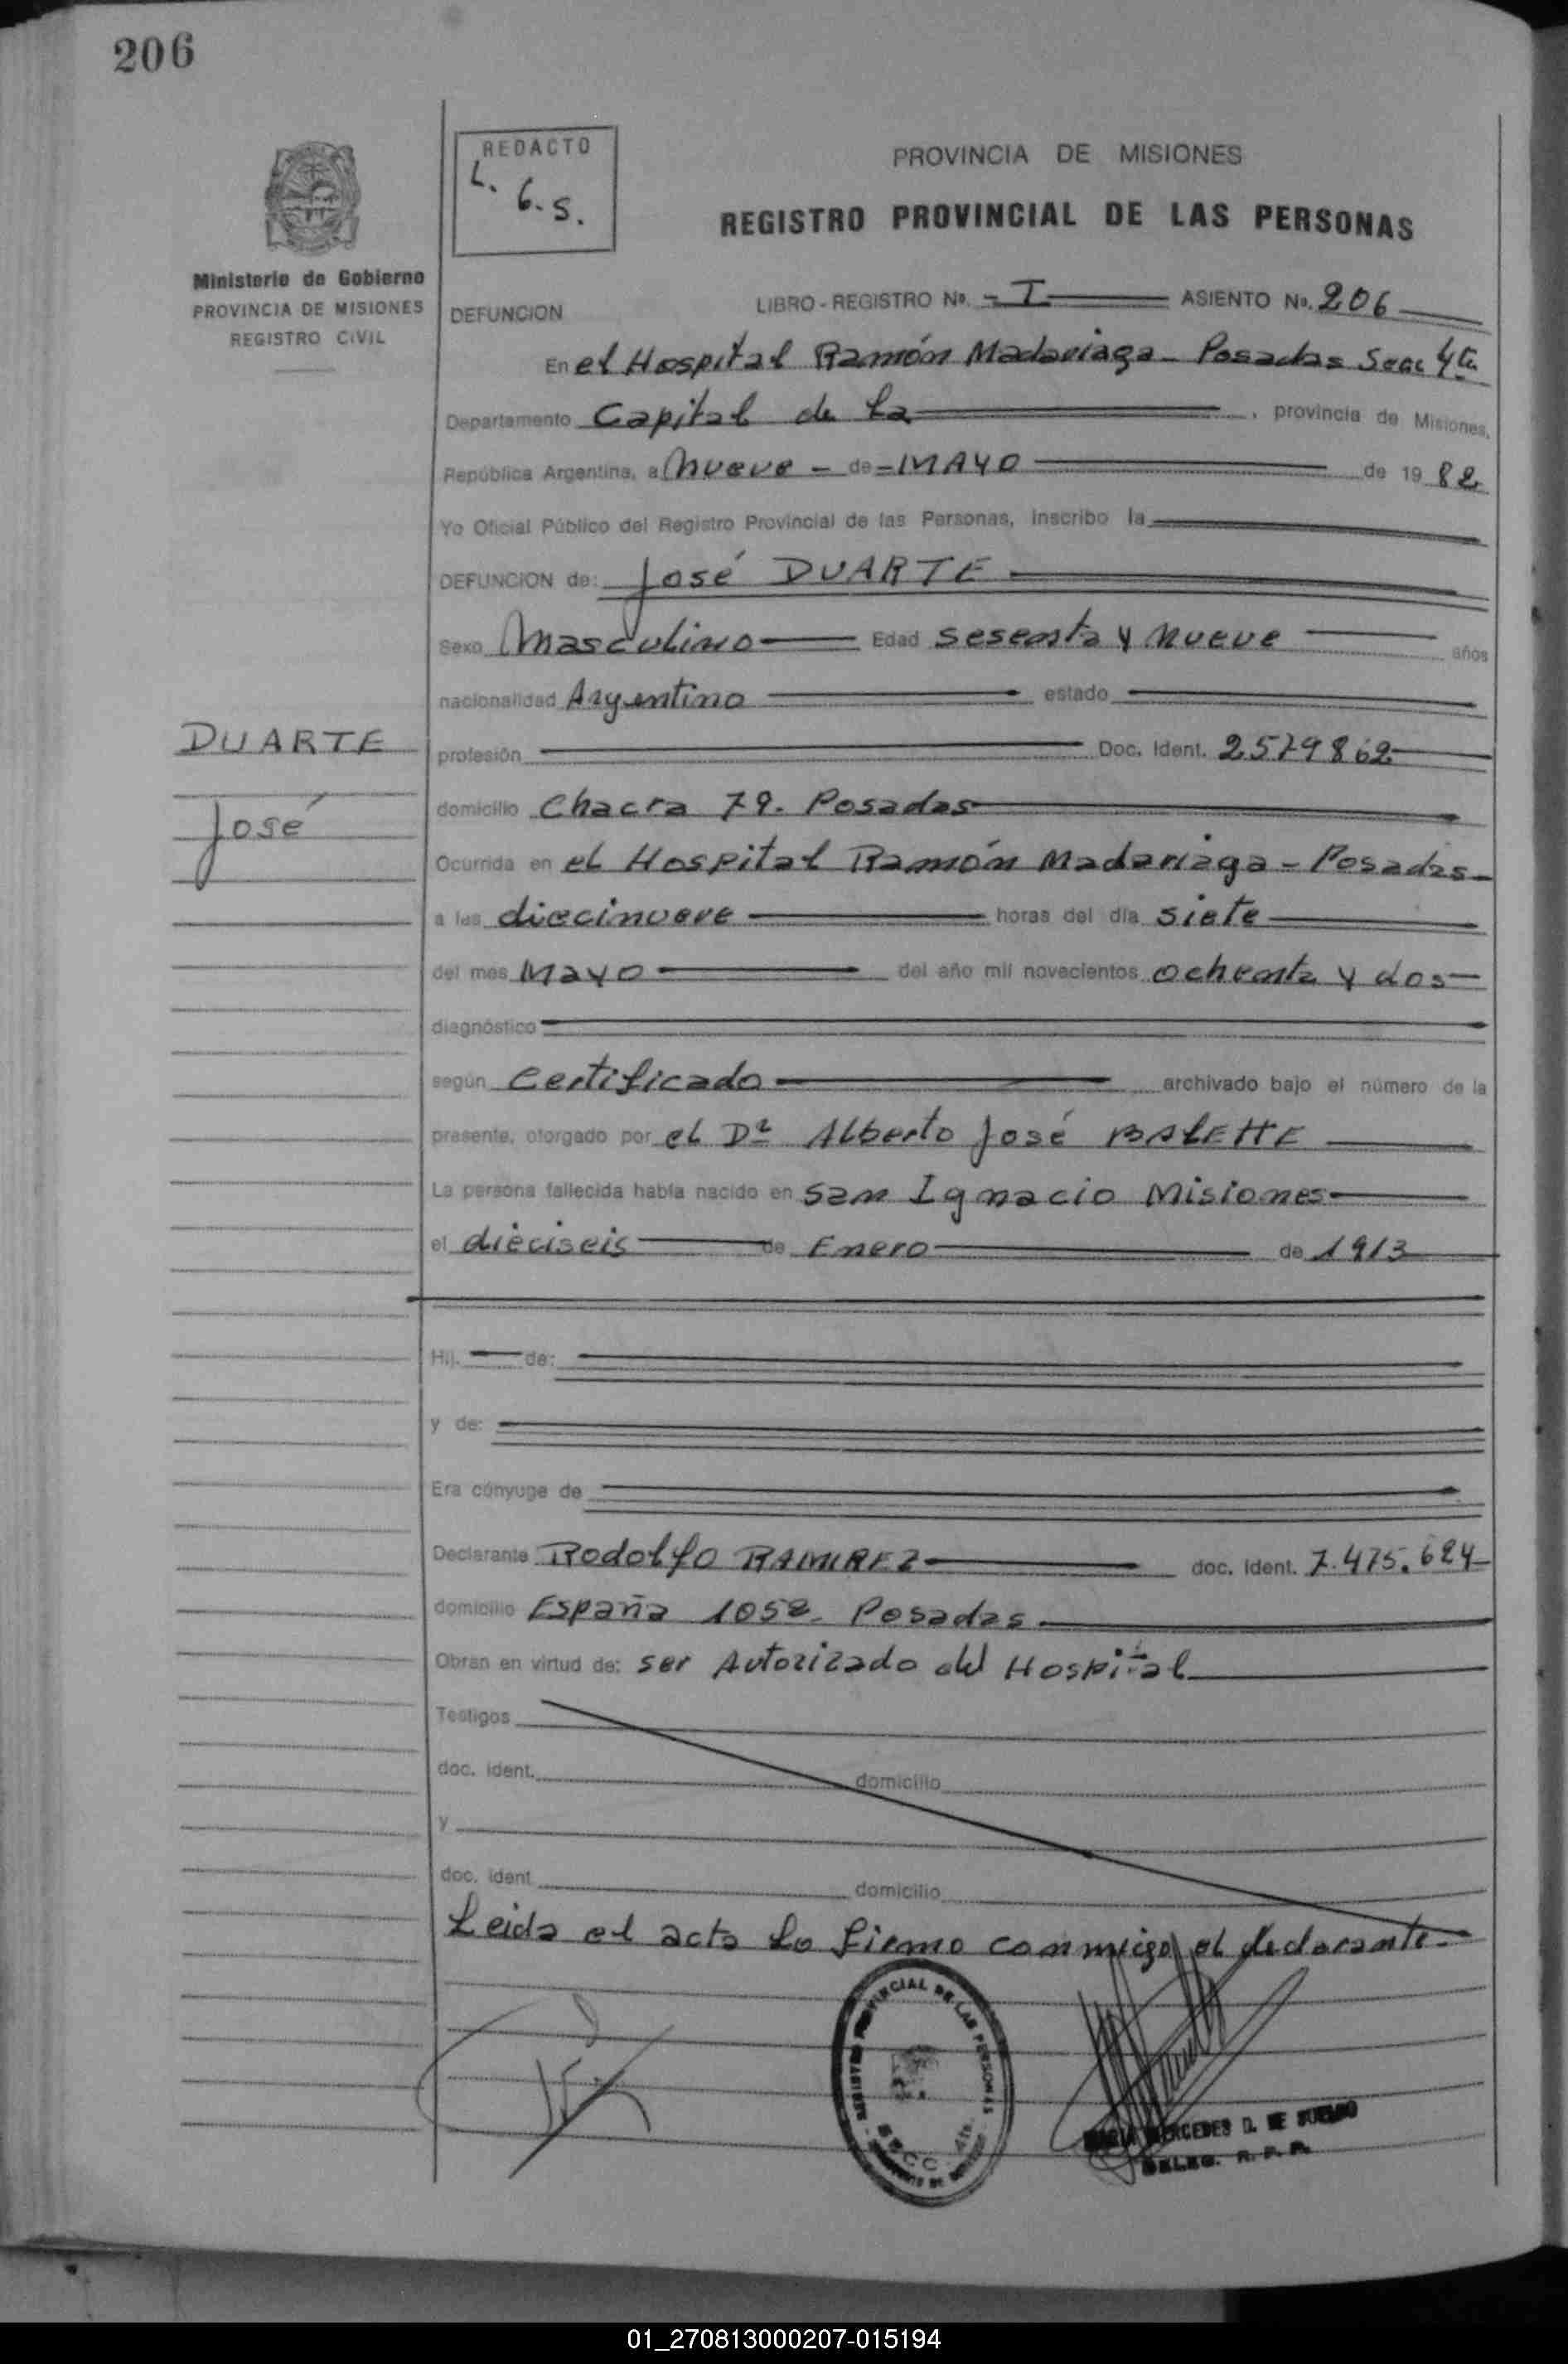 206
REDACTO
L. G. S.
PROVINCIA DE MISIONES
REGISTRO PROVINCIAL DE LAS PERSONAS
Ministerio de Gobierno
PROVINCIA DE MISIONES
REGISTRO CIVIL
DEFUNCION LIBRO - REGISTRO Nº. - I ASIENTO Nº. 206
En el Hospital Ramón Madariaga - Posadas Secc 4ta
Departamento Capital de la , provincia de Misiones,
República Argentina, a nueve - de - MAYO de 19 82
Yo Oficial Público del Registro Provincial de las Personas, inscribo la
DEFUNCION de: José DUARTE
Sexo Masculino Edad sesenta y nueve años
nacionalidad Argentino estado
DUARTE
José
profesión Doc. Ident. 2579862
domicilio Chacra 79. Posadas
Ocurrida en el Hospital Ramón Madariaga - Posadas
a las diecinueve horas del día siete
del mes Mayo del año mil novecientos ochenta y dos
diagnóstico
según Certificado archivado bajo el número de la
presente, otorgado por el Dr Alberto José BALETTE
La persona fallecida había nacido en San Ignacio Misiones
el dieciseis de Enero de 1913
Hij. de:
y de:
Era cónyuge de
Declarante Rodolfo RAMIREZ doc. ident. 7.475.624
domicilio España 1052. Posadas
Obran en virtud de: ser Autorizado del Hospital
Testigos
doc. ident. domicilio
y
doc. ident. domicilio
Leida el acta lo firmo conmigo el declarante.
REGISTRO PROVINCIAL DE LAS PERSONAS
SECC. 4ta.
MARIA MERCEDES D. DE
DELEG. R. P. P.
01_270813000207-015194